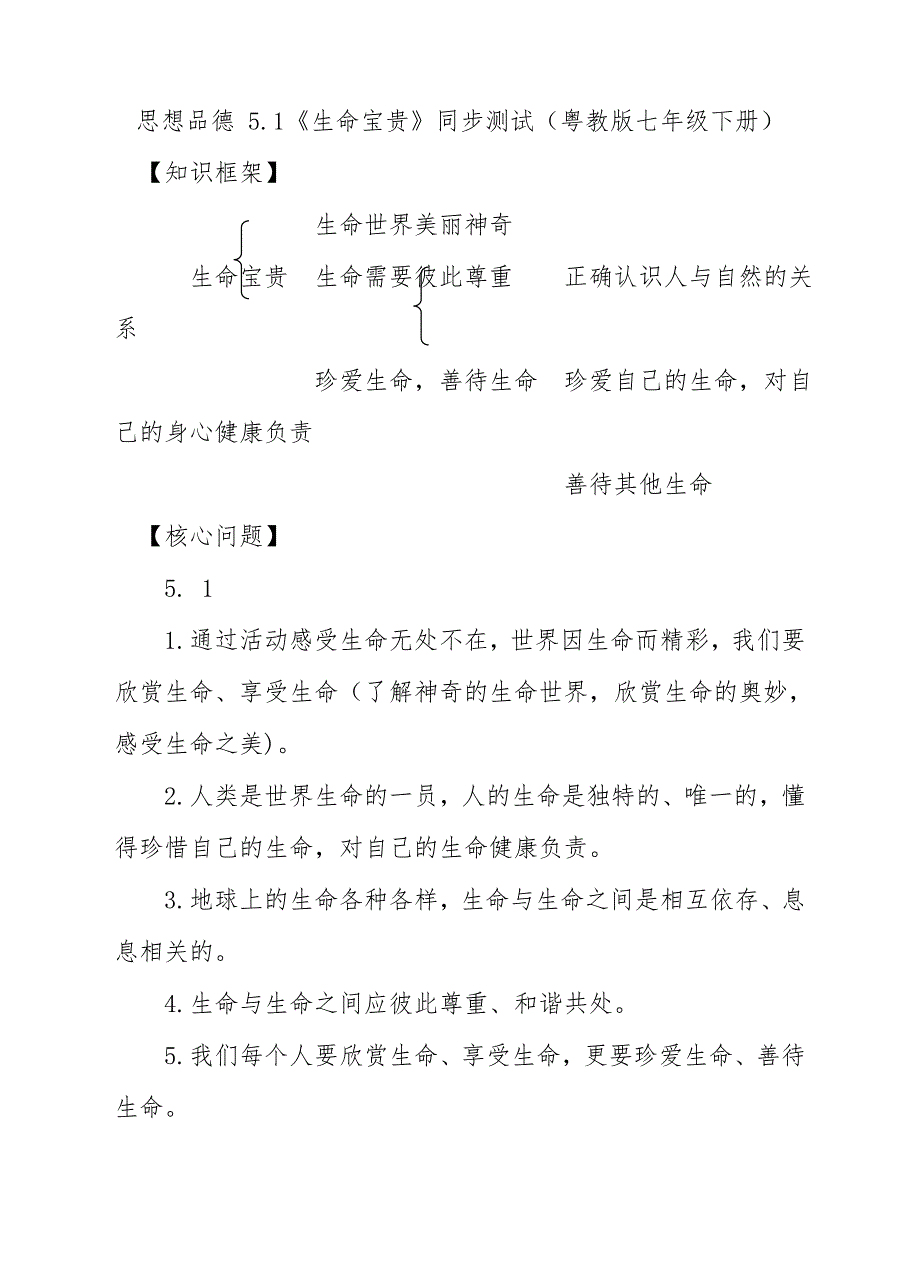 思想品德 5.1《生命宝贵》同步测试（粤教版七年级下册）
【知识框架】
生命世界美丽神奇
生命宝贵 生命需要彼此尊重 正确认识人与自然的关
系
珍爱生命，善待生命 珍爱自己的生命，对自
己的身心健康负责
善待其他生命
【核心问题】
5. 1
1.通过活动感受生命无处不在，世界因生命而精彩，我们要
欣赏生命、享受生命（了解神奇的生命世界，欣赏生命的奥妙，
感受生命之美)。
2.人类是世界生命的一员，人的生命是独特的、唯一的，懂
得珍惜自己的生命，对自己的生命健康负责。
3.地球上的生命各种各样，生命与生命之间是相互依存、息
息相关的。
4.生命与生命之间应彼此尊重、和谐共处。
5.我们每个人要欣赏生命、享受生命，更要珍爱生命、善待
生命。